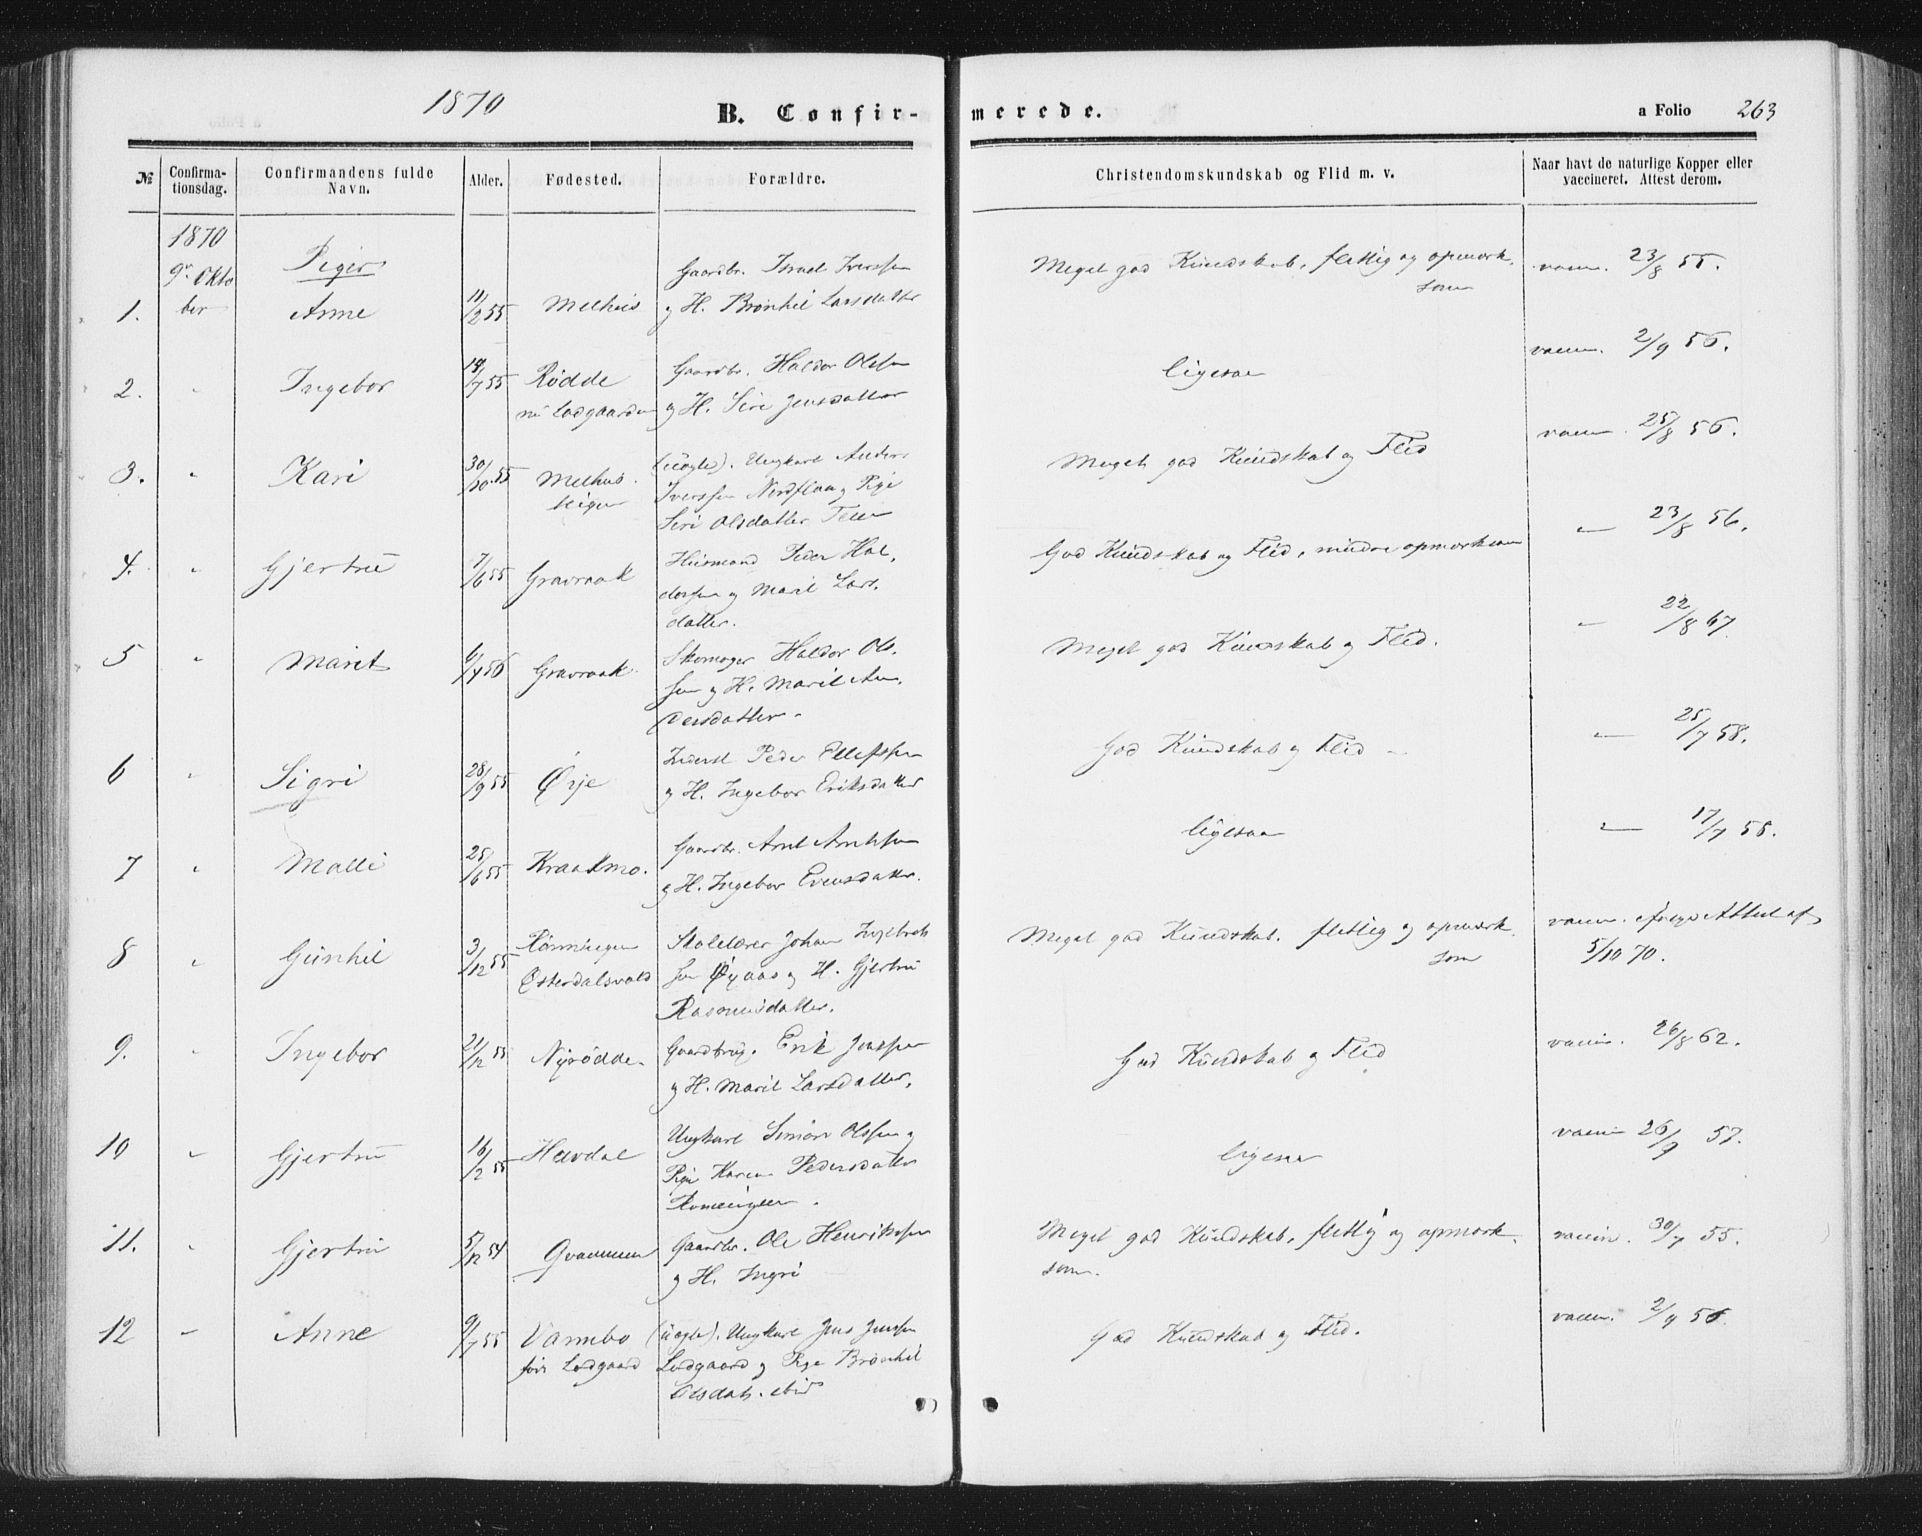 1870 B. Confir- merede. a Folio 263
№ Confirma-tionsdag. Confirmandens fulde Navn. Alder. Fødested. Forældre. Christendomskundskab og Flid m. v. Naar havt de naturlige Kopper eller vaccineret. Attest derom.
1870
9de Okto
ber
Piger
1. Anne 11/2 55 Melhus Gaardbr. Israel Iverssen
og H. Brønhil Larsdatter
Meget god Kundskab, flittig og opmærk
som
vaccin. 23/8 55.
2. " Ingebor 19/7 55 Rødde
nu Lodgaarden
Gaardbr. Haldor Olssen
og H. Siri Jensdatter
ligesaa
vaccin. 2/9 56.
3. " Kari 30/10 55 Melhus
(uægte). Ungkarl Anders
Iverssen Nordflaa og Pige
Siri Olsdatter
Meget god Kundskab og Flid
vaccin. 25/8 56.
4. " Gjertru 7/6 55 Gravraak Husmand Peder Hal,
dorssen og Marit Lars,
datter.
God Kundskab og Flid, mindre opmærksom
— 23/8 56.
5 " Marit 6/4 56 Gravraak Skomager Haldor Ols,
sen og H. Marit An,
dersdatter.
Meget god Kundskab og Flid.
" 22/8 67.
6 " Sigri 28/9 55 Øije Inderst Peder Ellefssen
og H. Ingebor Eriksdatter
God Kundskab og Flid —
— 25/7 58.
7 " Malli 25/6 55 Kraakmo. Gaardbr. Arnt Arntssen
og H. Ingebor Evensdatter.
ligesaa
— 17/7 56.
8 " Gunhil 3/12 55
Østerdalsvold
Skolelærer Johan Ingebrets
sen Øyaas og H. Gjertru
Rasmusdatter.
Meget god Kundskab. flittig og opmærk.
som
vaccin. ifølge Attest af
5/10 70.
9. " Ingebor 21/12 55 Nyrødde. Gaardbrug. Erik Jonssen
og H. Marit Larsdatter.
God Kundskab og Flid
vaccin. 26/8 62.
10 " Gjertru 16/2 55 Hevdal Ungkarl Simon Olssen og
Pige Karen Pedersdatter
ligesaa
vaccin 26/9 57.
11. " Gjertru 5/12 54 Qvammen Gaardbr. Ole Henrikssen
og H. Ingri
Meget god Kundskab, flittig og opmærk.
som.
vaccin. 30/7 55.
12 — Anne 9/7 55 Vammbo
før Lodgaard
(uægte). Ungkarl Jens Jenssen
Lodgaard og Pige Brønhil
Olsdatr. ibid
God Kundskab og Flid.
vaccin. 2/9 56.